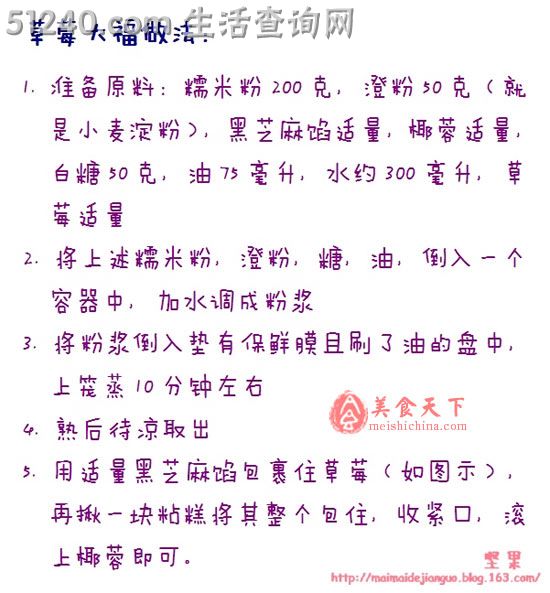 51240.com 生活查询网
草莓大福做法:
1. 准备原料: 糯米粉200克, 澄粉50克 (就
是小麦淀粉), 黑芝麻馅适量, 椰蓉适量,
白糖50克, 油75毫升, 水约300毫升, 草
莓适量
2. 将上述糯米粉, 澄粉, 糖, 油, 倒入一个
容器中, 加水调成粉浆
3. 将粉浆倒入垫有保鲜膜且刷了油的盘中,
上笼蒸10分钟左右
美食天下
meishichina.com
4. 熟后待凉取出
5. 用适量黑芝麻馅包裹住草莓 (如图示),
再揪一块粘糕将其整个包住, 收紧口, 滚
上椰蓉即可。
坚果
http://maimaidejianguo.blog.163.com/